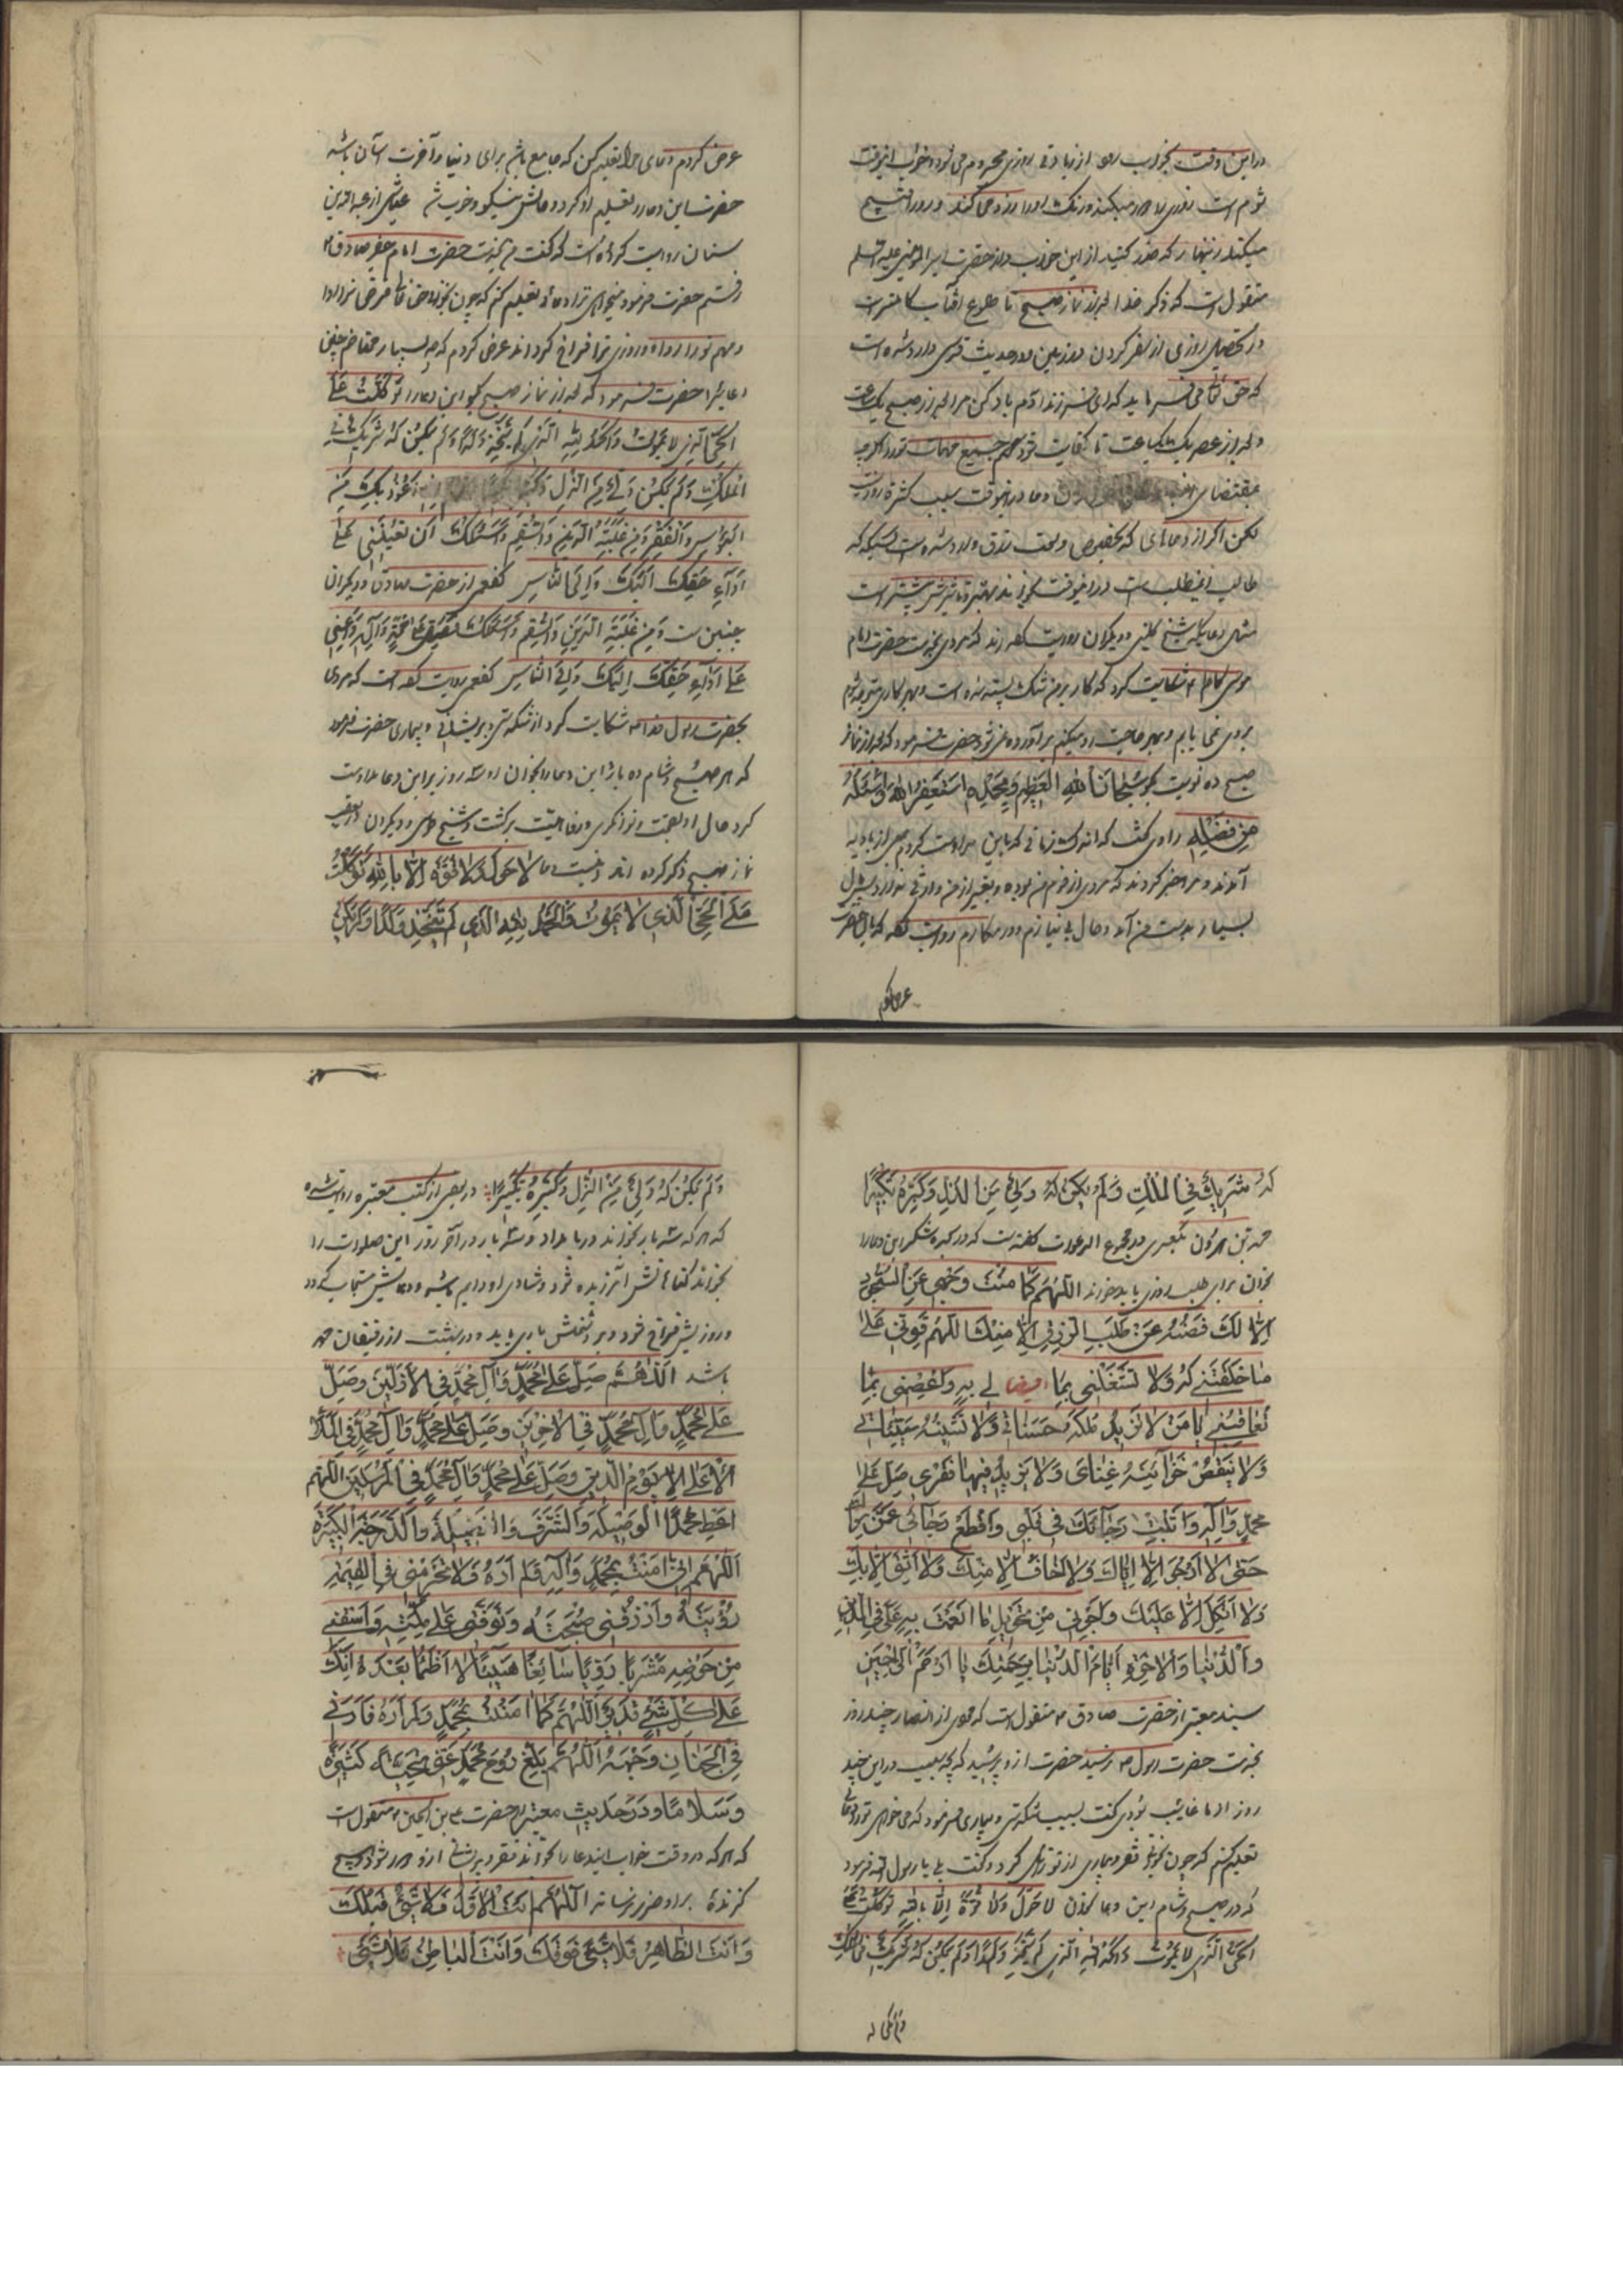 در این وقت بخوابد او از زیادتی روزی محروم می شود و خواب این وقت
شوم است روزی را
میکند زینهار که حذر کنید از این خواب و از حضرت امیر المؤمنین علیه السلم
منقول است که ذکر خدا بعد از نماز صبح تا طلوع آفتاب کاملتر است
در تحصیل روزی از سفر کردن در زمین و در حدیث قدسی وارد شده است
که حق تعالی می فرماید که ای فرزند آدم یاد کن مرا بعد از صبح یک ساعت
و بعد از عصر یک ساعت تا کفایت کنم جمیع مهمات تو را اگر چه
بمقتضای دعا در این وقت سبب کثرة روزیست
لکن اگر از دعاهای که بخصوص وسعت رزق وارد شده است
طالب این مطلب است در این وقت بخواند بهتر و تأثیرش بیشتر است
مثل دعائیکه شیخ کلینی و دیگران روایت کرده اند که مردی بخدمت حضرت امام
موسی کاظم شکایت کرد که کار بر من تنک بسته شده است و بهر کاری متوجه میشوم
سودی نمی یابم و بهر حاجت رو میکنم برآورده نمی شود حضرت فرمود که بعد از نماز
صبح ده نوبت بگو سُبْحانَ اللهِ الْعَظیمِ وَ بِحَمْدِهِ اَسْتَغْفِرُ اللهَ وَ اَسْئَلُهُ
مِنْ فَضْلِهِ راوی گفت که اندک زمانی که باین مداومت کردم جمعی از بادیه
آمدند و مرا خبر کردند که مردی از قوم من بوده و بغیر از من وارثی ندارد
بسیار بدست من آمد و حال بی نیازم و در مکارم روایت کرده که
عرض کردم
عرض کردم دعای مرا تعلیم کن که جامع باشد برای دنیا و آخرت و آسان باشد
حضرت این دعا را تعلیم او کرد و حالش نیکو و خوب شد عیاشی از عبدالله بن
سنان روایت کرده است که گفت من بخدمت حضرت امام جعفر صادق
رفتم حضرت فرمود میخواهی ترا دعائی تعلیم کنم که چون بخوانی حق تعالی قرض ترا ادا
و روزی ترا فراخ گرداند عرض کردم که چه بسیار محتاجم بچنین
دعائی را حضرت فرمود که بعد از نماز صبح بگو این دعا را تَوَكَّلْتُ عَلَى
الْحَيِّ الَّذِي لا يَمُوتُ وَالْحَمْدُ لِلّٰهِ الَّذِي لَمْ يَتَّخِذْ وَلَدًا وَلَمْ يَكُنْ لَهُ شَرِيكٌ فِي
الْمُلْكِ وَلَمْ يَكُنْ وَلِيٌّ مِنَ الذُّلِّ اَعُوذُ بِكَ مِنَ
الْبُؤْسِ وَالْفَقْرِ وَمِنْ غَلَبَةِ الدَّيْنِ وَالسُّقْمِ وَاَسْئَلُكَ اَنْ تُعِينَنِي عَلَى
اَدَاءِ حَقِّكَ اِلَيْكَ وَاِلَى النَّاسِ کفعمی از حضرت صادق و دیگران
چنین است وَمِنْ غَلَبَةِ الدَّيْنِ وَالسُّقْمِ وَاَسْئَلُكَ مُحَمَّدٍ وَآلِهِ وَاَعِنِّي
عَلَى اَدَاءِ حَقِّكَ اِلَيْكَ وَاِلَى النَّاسِ کفعمی روایت کرده است که مردی
بحضرت رسول خدا شکایت کرد از تنگدستی و پریشانی و بیماری حضرت فرمود
که هر صبح و شام ده بار این دعا را بخوان و سه روز بر این دعا مداومت
کرد حال او بصحت و توانگری و عافیت برگشت و شیخ طوسی و دیگران
نماز صبح ذکر کرده اند لا حَوْلَ وَلا قُوَّةَ اِلّا بِاللهِ تَوَكَّلْتُ
عَلَى الْحَيِّ الَّذِي لا يَمُوتُ وَالْحَمْدُ لِلّٰهِ الَّذِي لَمْ يَتَّخِذْ وَلَدًا وَلَمْ يَكُنْ
لَهُ شَرِيكٌ فِي الْمُلْكِ وَلَمْ يَكُنْ لَهُ وَلِيٌّ مِنَ الذُّلِّ وَكَبِّرْهُ تَكْبِيرًا
در مجموع الدعوات گفته است که در سجده شکر این دعا را
بخوان برای طلب روزی اَللّٰهُمَّ كَمَا صُنْتَ وَجْهِي عَنِ السُّجُودِ
اِلّا لَكَ فَصُنْهُ عَنْ طَلَبِ الرِّزْقِ اِلّا مِنْكَ اَللّٰهُمَّ قَوِّنِي عَلَى
مَا خَلَقْتَنِي لَهُ وَلا تَشْغَلْنِي بِمَا لِي بِهِ وَاعْصِمْنِي بِمَا
تُعَاقِبُنِي يَا مَنْ لا تَزِيدُ مُلْكَهُ حَسَنَاتِي وَلا تَشِينُهُ سَيِّئَاتِي
وَلا يَنْقُصُ خَزَائِنَهُ غِنَايَ وَلا يَزِيدُ فِيهَا فَقْرِي صَلِّ عَلَى
مُحَمَّدٍ وَآلِهِ وَاَثْبِتْ رَجَائَكَ فِي قَلْبِي وَاقْطَعْ رَجَائِي عَمَّنْ سِوَاكَ
حَتّى لا اَرْجُوَ اِلّا اِيَّاكَ وَلا اَخَافَ اِلّا مِنْكَ وَلا اَثِقَ اِلّا بِكَ
وَلا اَتَّكِلَ اِلّا عَلَيْكَ وَاَجِرْنِي مِنْ تَحْوِيلِ مَا اَنْعَمْتَ بِهِ عَلَيَّ فِي الدِّينِ
وَالدُّنْيَا وَالْاٰخِرَةِ اَيَّامَ الدُّنْيَا بِرَحْمَتِكَ يَا اَرْحَمَ الرَّاحِمِينَ
بسند معتبر از حضرت صادق منقول است که مردی از انصار چند روز
بخدمت حضرت رسول نرسید حضرت از و پرسید که چه سبب در این چند
روز از ما غایب بودی گفت بسبب تنگدستی و بیماری فرمود که می خواهی تو را دعائی
تعلیم کنم که چون بخوانی فقر و بیماری از تو زایل گردد گفت بلی یا رسول الله فرمود
که در صبح و شام این دعا بخوان لا حَوْلَ وَلا قُوَّةَ اِلّا بِاللهِ تَوَكَّلْتُ عَلَى
الْحَيِّ الَّذِي لا يَمُوتُ وَالْحَمْدُ لِلّٰهِ الَّذِي لَمْ يَتَّخِذْ وَلَدًا وَلَمْ يَكُنْ لَهُ شَرِيكٌ فِي الْمُلْكِ
ولم یکن له
وَلَمْ يَكُنْ لَهُ وَلِيٌّ مِنَ الذُّلِّ وَكَبِّرْهُ تَكْبِيرًا در بعضی از کتب معتبره روایت شده
که هر که سه بار بخواند در بامداد و سه بار در آخر روز این صلوات را
بخواند گناهانش آمرزیده شود و شادی او دایم باشد و دعایش مستجاب گردد
و روزیش فراخ شود و بر دشمنش یاری یابد و در بهشت از رفیقان محمد
باشد اَللّٰهُمَّ صَلِّ عَلَى مُحَمَّدٍ وَآلِ مُحَمَّدٍ فِي الْاَوَّلِينَ وَصَلِّ
عَلَى مُحَمَّدٍ وَآلِ مُحَمَّدٍ فِي الْاٰخِرِينَ وَصَلِّ عَلَى مُحَمَّدٍ وَآلِ مُحَمَّدٍ فِي الْمَلَاِ
الْاَعْلَى اِلَى يَوْمِ الدِّينِ وَصَلِّ عَلَى مُحَمَّدٍ وَآلِ مُحَمَّدٍ فِي الْمُرْسَلِينَ اَللّٰهُمَّ
اَعْطِ مُحَمَّدًا الْوَسِيلَةَ وَالشَّرَفَ وَالْفَضِيلَةَ وَالدَّرَجَةَ الْكَبِيرَةَ
اَللّٰهُمَّ اِنِّي اٰمَنْتُ بِمُحَمَّدٍ وَآلِهِ وَلَمْ اَرَهُ فَلا تَحْرِمْنِي فِي الْقِيٰمَةِ
رُؤْيَتَهُ وَارْزُقْنِي صُحْبَتَهُ وَتَوَفَّنِي عَلَى مِلَّتِهِ وَاسْقِنِي
مِنْ حَوْضِهِ مَشْرَبًا رَوِيًّا سَائِغًا هَنِيئًا لا اَظْمَأُ بَعْدَهُ اِنَّكَ
عَلَى كُلِّ شَيْءٍ قَدِيرٌ اَللّٰهُمَّ كَمَا اٰمَنْتُ بِمُحَمَّدٍ وَلَمْ اَرَهُ فَاَرِنِي
فِي الْجِنَانِ وَجْهَهُ اَللّٰهُمَّ بَلِّغْ رُوحَ مُحَمَّدٍ عَنِّي تَحِيَّةً كَثِيرَةً
وَسَلامًا و در حدیث معتبر از حضرت علی بن الحسین منقول است
که هر که در وقت خواب این دعا را بخواند فقر و پریشانی از و دور شود و هیچ
گزندهٔ بر او ضرر نرساند اَللّٰهُمَّ اَنْتَ الْاَوَّلُ فَلا شَيْءَ قَبْلَكَ
وَاَنْتَ الظَّاهِرُ فَلا شَيْءَ فَوْقَكَ وَاَنْتَ الْبَاطِنُ فَلا شَيْءَ